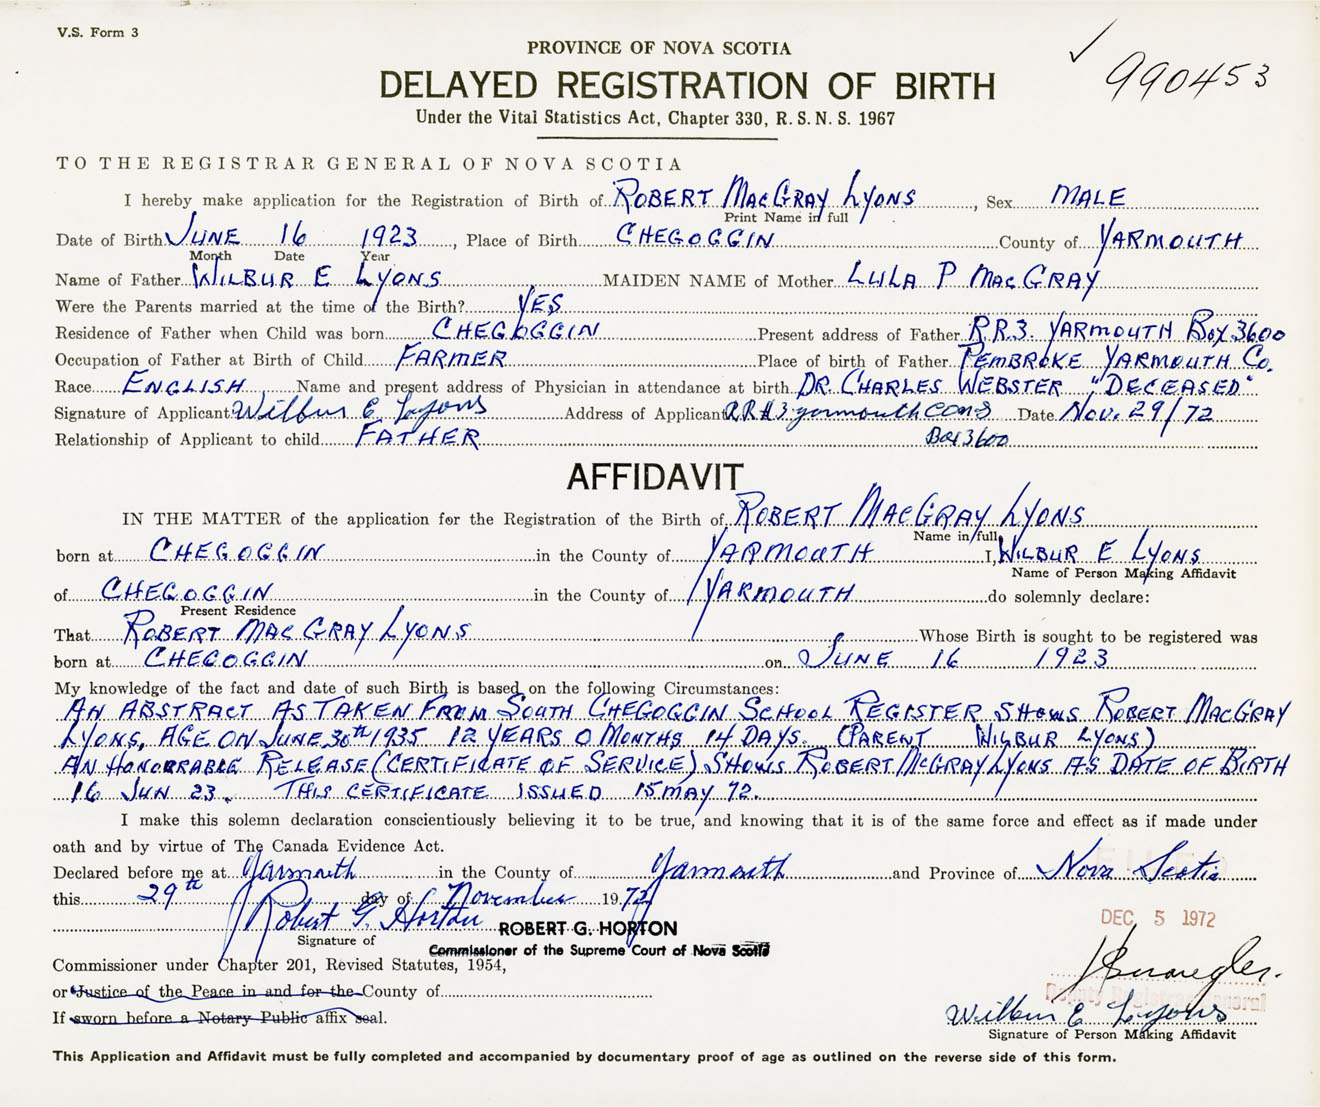 V.S. Form 3
PROVINCE OF NOVA SCOTIA
990453
DELAYED REGISTRATION OF BIRTH
Under the Vital Statistics Act, Chapter 330, R. S. N. S. 1967
TO THE REGISTRAR GENERAL OF NOVA SCOTIA
I hereby make application for the Registration of Birth of ROBERT MACGRAY LYONS, Sex MALE
Print Name in full
Date of Birth JUNE 16 1923, Place of Birth CHEGOGGIN County of YARMOUTH
Month Date Year
Name of Father WILBUR E LYONS MAIDEN NAME of Mother LULA P MACGRAY
Were the Parents married at the time of the Birth? YES
Residence of Father when Child was born CHEGOGGIN Present address of Father R.R.3. YARMOUTH BOX 3600
Occupation of Father at Birth of Child FARMER Place of birth of Father PEMBROKE YARMOUTH CO.
Race ENGLISH Name and present address of Physician in attendance at birth DR. CHARLES WEBSTER "DECEASED"
Signature of Applicant Wilbur E Lyons Address of Applicant R.R.#3 yarmouth CO NS Date Nov. 29/72
Relationship of Applicant to child FATHER Box 3600
AFFIDAVIT
IN THE MATTER of the application for the Registration of the Birth of ROBERT MACGRAY LYONS
Name in full
born at CHEGOGGIN in the County of YARMOUTH I, WILBUR E LYONS
Name of Person Making Affidavit
of CHEGOGGIN in the County of YARMOUTH do solemnly declare:
Present Residence
That ROBERT MACGRAY LYONS Whose Birth is sought to be registered was
born at CHEGOGGIN on JUNE 16 1923
My knowledge of the fact and date of such Birth is based on the following Circumstances:
AN ABSTRACT AS TAKEN FROM SOUTH CHEGOGGIN SCHOOL REGISTER SHOWS ROBERT MACGRAY
LYONS, AGE ON JUNE 30th 1935 12 YEARS 0 MONTHS 14 DAYS. (PARENT WILBUR LYONS)
AN HONORRABLE RELEASE (CERTIFICATE OF SERVICE) SHOWS ROBERT MCGRAY LYONS AS DATE OF BIRTH
16 JUN 23. THIS CERTIFICATE ISSUED 15 MAY 72.
I make this solemn declaration conscientiously believing it to be true, and knowing that it is of the same force and effect as if made under
oath and by virtue of The Canada Evidence Act.
Declared before me at Yarmouth in the County of Yarmouth and Province of Nova Scotia
this 29th day of November 1972
DEC. 5 1972
Robert G. Horton ROBERT G. HORTON
Signature of Commissioner of the Supreme Court of Nova Scotia
Commissioner under Chapter 201, Revised Statutes, 1954,
or Justice of the Peace in and for the County of
Deputy Registrar General
If sworn before a Notary Public affix seal.
Wilbur E Lyons
Signature of Person Making Affidavit
This Application and Affidavit must be fully completed and accompanied by documentary proof of age as outlined on the reverse side of this form.